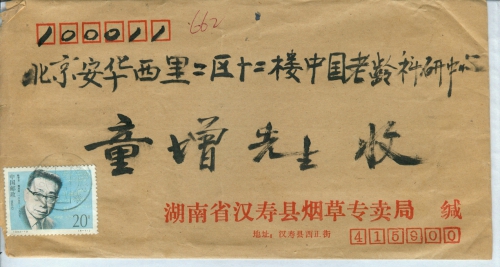 100011
662
北京安华西里二区十二楼中国老龄科研中心
童增先生 收
20分
湖南省汉寿县烟草专卖局 缄
地址：汉寿县南正街 415900